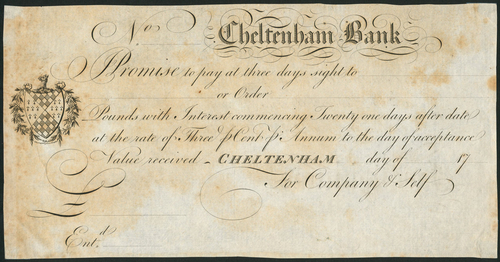 No Cheltenham Bank
I Promise to pay at three days sight to
or Order
Pounds with Interest commencing Twenty one days after date
at the rate of Three p Cent p Annum to the day of acceptance
Value received - CHELTENHAM day of 17
For Company & Self
Ent.d